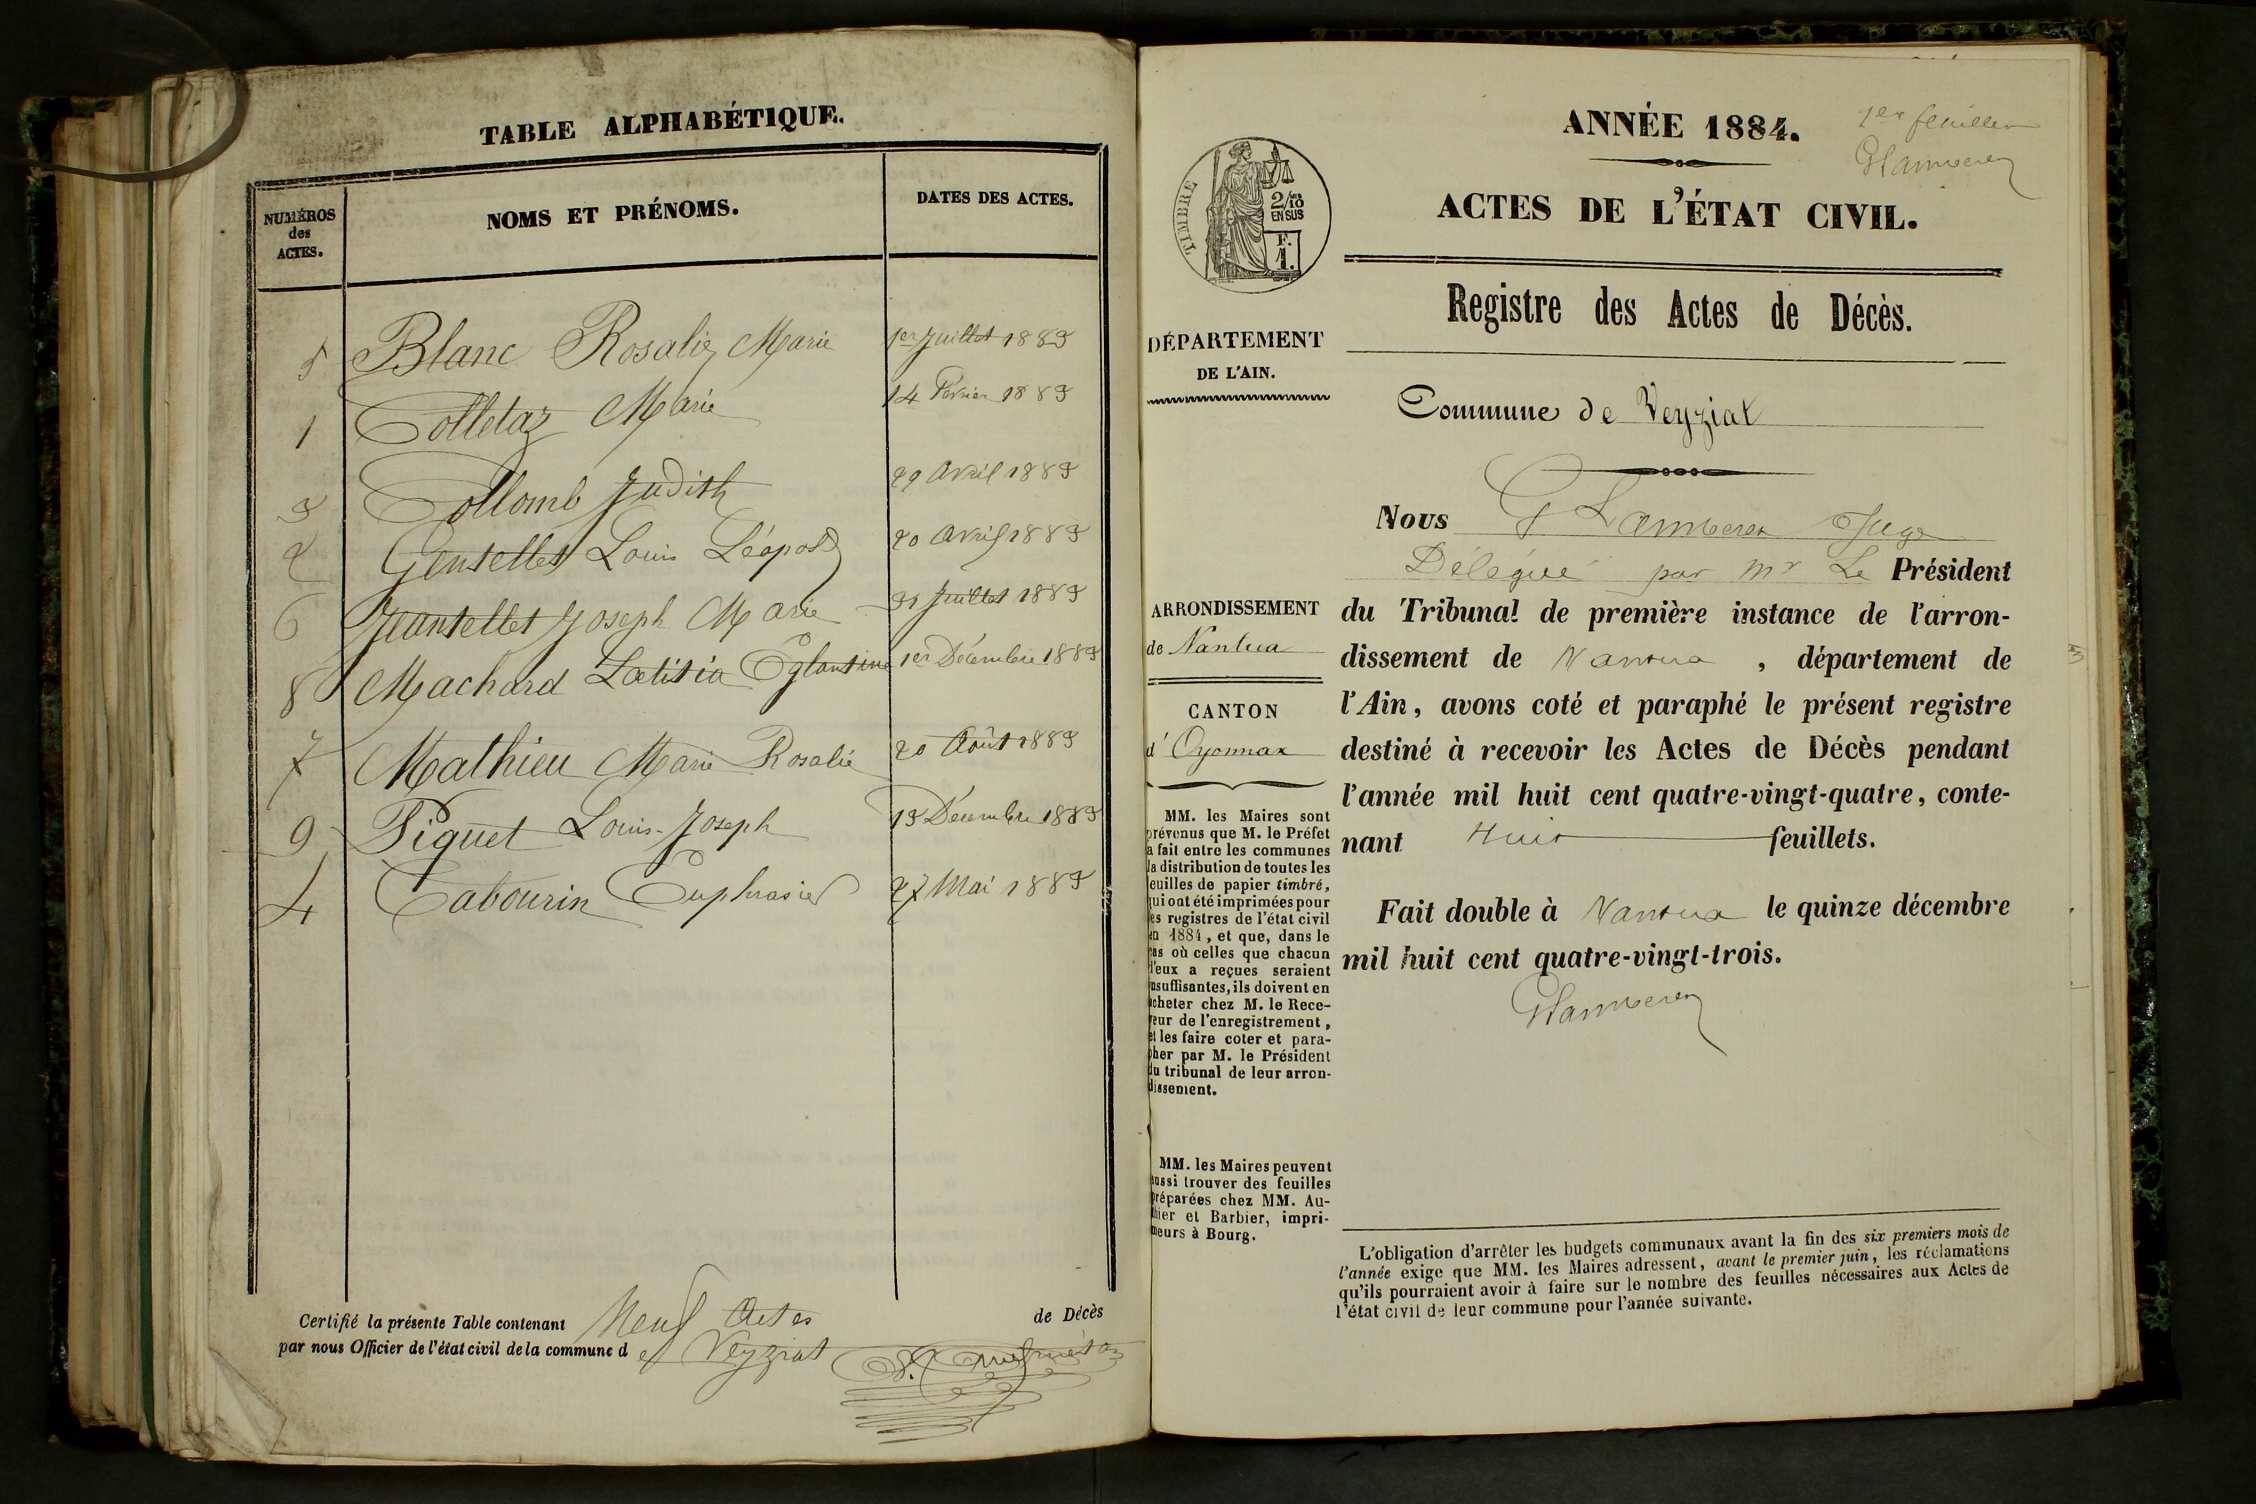 TABLE ALPHABÉTIQUE.
NUMÉROS
des
ACTES.
NOMS ET PRÉNOMS.
DATES DES ACTES.
5 Blanc Rosalie Marie 1er Juillet 1883
1 Colletaz Marie 14 Février 1883
3 Collomb Judith 29 Avril 1883
2 Gentellet Louis Léopold 20 Avril 1883
6 Jeantellet Joseph Marie 31 Juillet 1883
8 Machard Lætitia Eglantine 1er Décembre 1883
7 Mathieu Marie Rosalie 20 Août 1883
9 Piquet Louis-Joseph 13 Décembre 1883
4 Tabourin Euphrasie 27 Mai 1883
Certifié la présente Table contenant Neuf Actes de Décès
par nous Officier de l'état civil de la commune de Veyziat
ANNÉE 1884.
1er feuillet
ACTES DE L'ÉTAT CIVIL.
TIMBRE
2/10
EN SUS
F.
1.
Registre des Actes de Décès.
DÉPARTEMENT
DE L'AIN.
Commune de Veyziat
Nous G Lamberet Juge
Délégué par Mr Le Président
du Tribunal de première instance de l'arron-
dissement de Nantua, département de
l'Ain, avons coté et paraphé le présent registre
destiné à recevoir les Actes de Décès pendant
l'année mil huit cent quatre-vingt-quatre, conte-
nant Huit feuillets.
Fait double à Nantua le quinze décembre
mil huit cent quatre-vingt-trois.
ARRONDISSEMENT
de Nantua
CANTON
d'Oyonnax
MM. les Maires sont
prévenus que M. le Préfet
a fait entre les communes
la distribution de toutes les
feuilles de papier timbré,
qui ont été imprimées pour
les registres de l'état civil
en 1884, et que, dans le
cas où celles que chacun
d'eux a reçues seraient
insuffisantes, ils doivent en
acheter chez M. le Rece-
veur de l'enregistrement,
et les faire coter et para-
pher par M. le Président
du tribunal de leur arron-
dissement.
MM. les Maires peuvent
aussi trouver des feuilles
préparées chez MM. Au-
thier et Barbier, impri-
meurs à Bourg.
L'obligation d'arrêter les budgets communaux avant la fin des six premiers mois de
l'année exige que MM. les Maires adressent, avant le premier juin, les réclamations
qu'ils pourraient avoir à faire sur le nombre des feuilles nécessaires aux Actes de
l'état civil de leur commune pour l'année suivante.